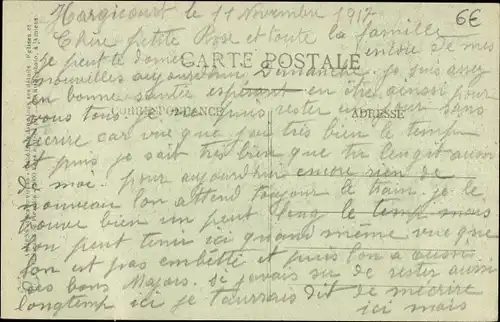 Hargicourt le 11 Novembre 1917
6€
Chère petite Rose et toute la famille
je peut te donner encore de mes
CARTE POSTALE
nouvelles aujourdhui Dimanche. je suis assez
en bonne santée esperant en être aussi pour
vous tous je ne puis rester un jour sans
CORRESPONDANCE
ADRESSE
t'écrire car vue que j'ai très bien le temp
et puis je sait très bien que tu lenguit aussi
de moi. pour aujourdhui encore rien de
nouveau l'on attend toujour le train. je le
trouve bien un peut long le temp mais
l'on peut tenir ici quand même vue que
l'on est pas embêtté et puis l'on a aussi
des bons Majors. se javais su de rester aussi
longtemp ici je t'aurrais dit de mécrire
ici mais